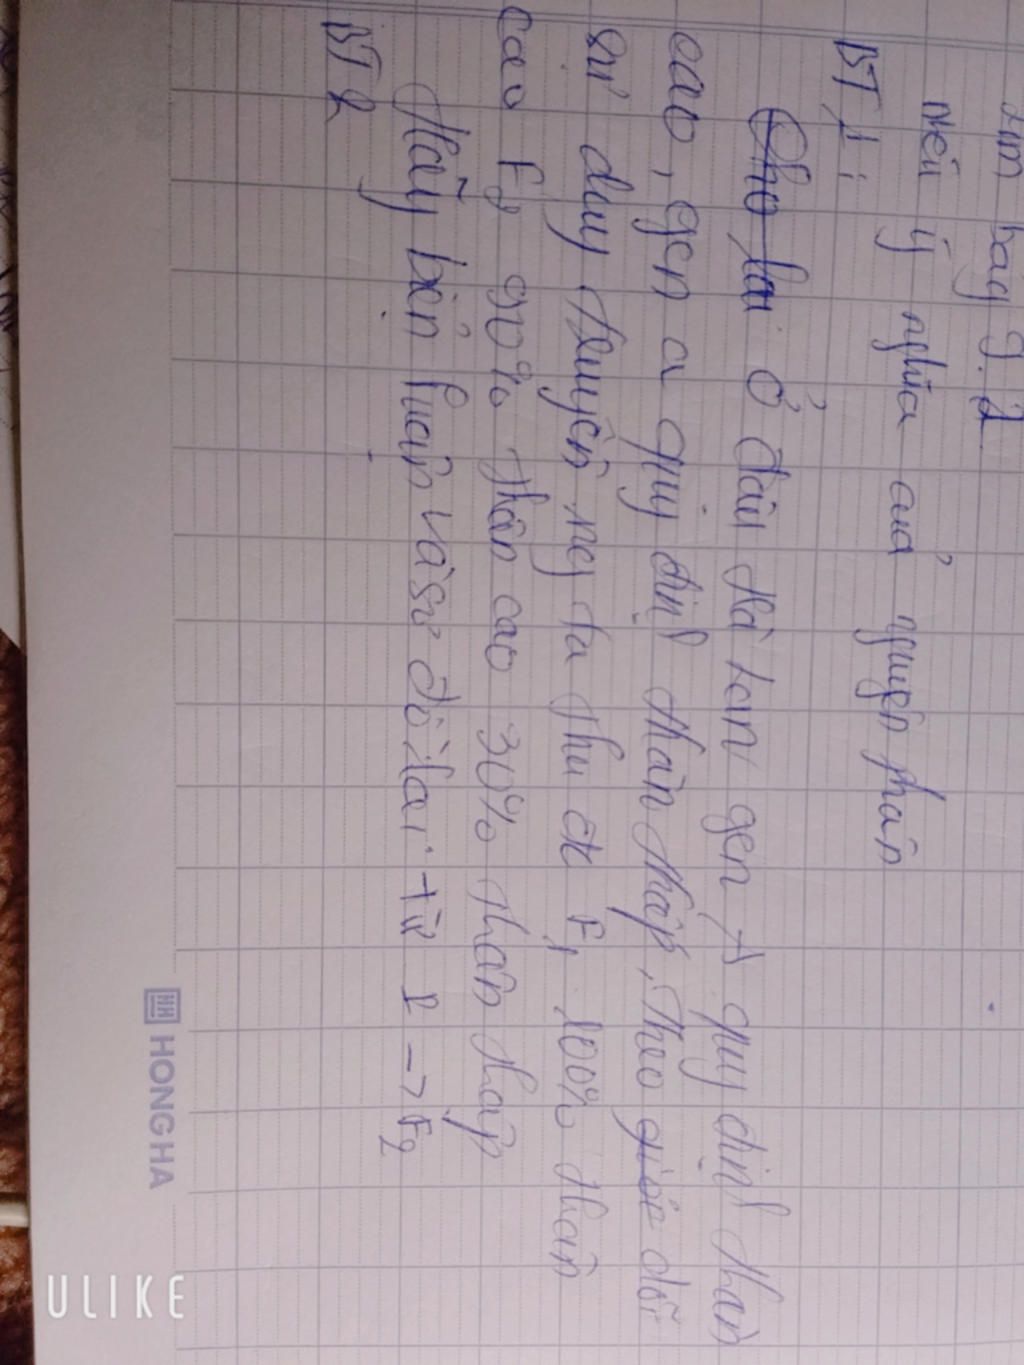 nêu ý nghĩa của nguyên phân
BT 1:
Cho lai Ở đậu Hà Lan gen A quy định thân
cao, gen a quy định thân thấp, theo giõi dõi
sự duy truyền ng ta thu đc F1 100% thân
cao F2 90% thân cao 30% thân thấp
Hãy biện luận và sơ đồ lai từ P -> F2
BT 2
HONG HA
ULIKE